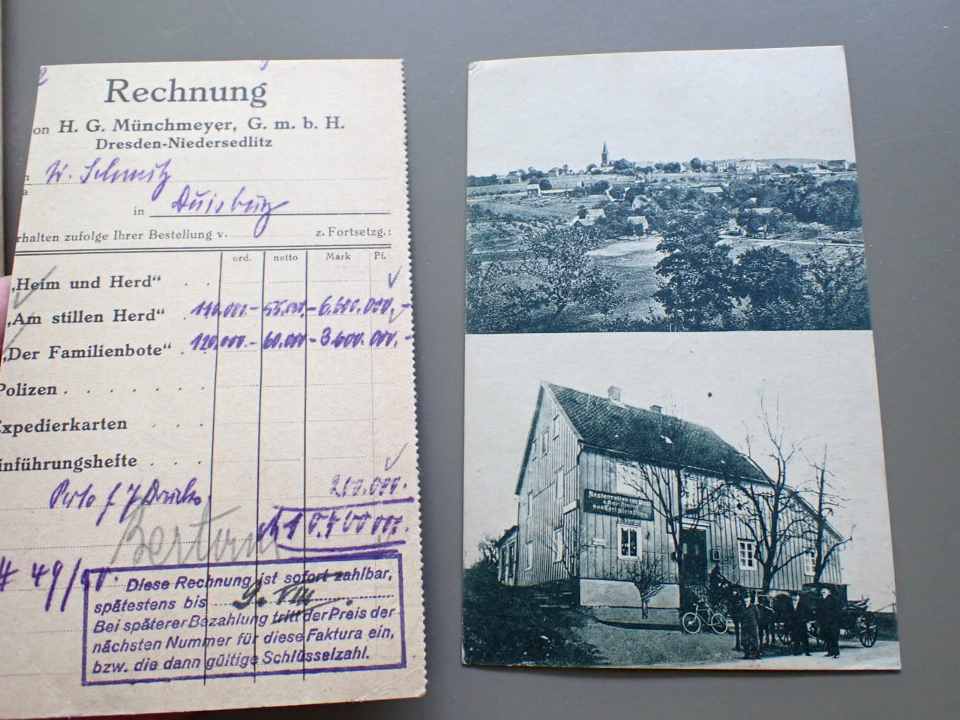 Rechnung
on H. G. Münchmeyer, G. m. b. H.
Dresden-Niedersedlitz
W. Schmitz
in Duisburg
rhalten zufolge Ihrer Bestellung v. z. Fortsetzg.:
ord. netto Mark Pf.
„Heim und Herd“ . .
„Am stillen Herd“ . 110.000.- 55.000.- 6.600.000,-
„Der Familienbote“ . 120.000.- 60.000.- 3.600.000,-
Polizen . . . . . .
Expedierkarten
inführungshefte . . .
Porto f. 200.000.
10.400.000.
# 49/50.
Diese Rechnung ist sofort zahlbar,
spätestens bis 9. VIII
Bei späterer Bezahlung tritt der Preis der
nächsten Nummer für diese Faktura ein,
bzw. die dann gültige Schlüsselzahl.
Restauration